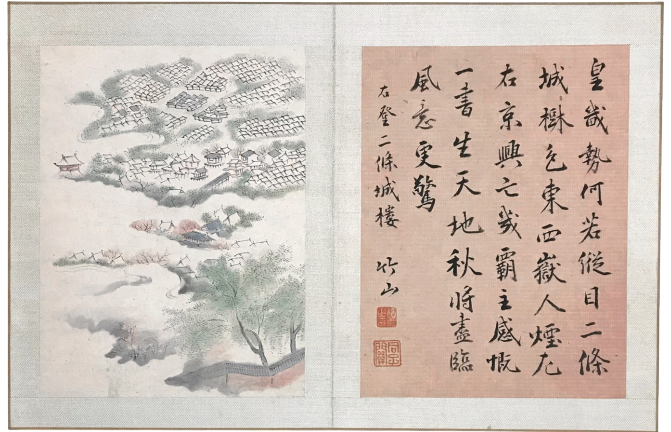 皇畿勢何若縱目二條
城樹色東西嶽人煙左
右京興亡幾覇主感慨
一書生天地秋将盡臨
風意更驚
右登二條城樓 竹山